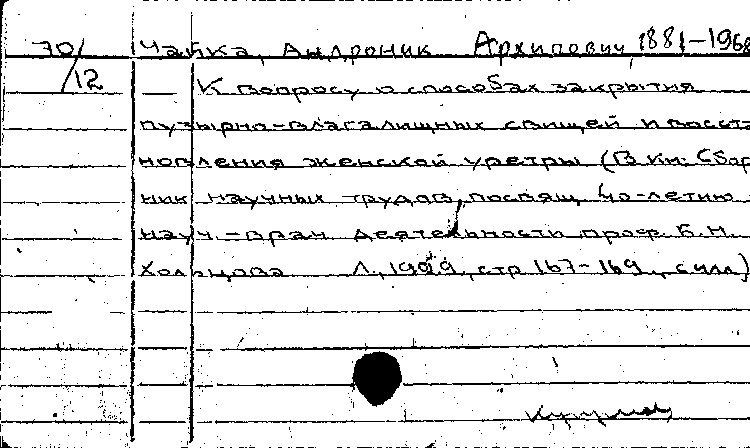 70/12 Чайка, Андроник Архипович, 1881–1968
— К вопросу о способах закрытия
пузырно-влагалищных свищей и восста-
новления женской уретры (В кн: Сбор
ник научных трудов, посвящ 40-летию
науч.-врач деятельность проф. Б.Н.
Хольцова Л, стр 167–169, с илл)